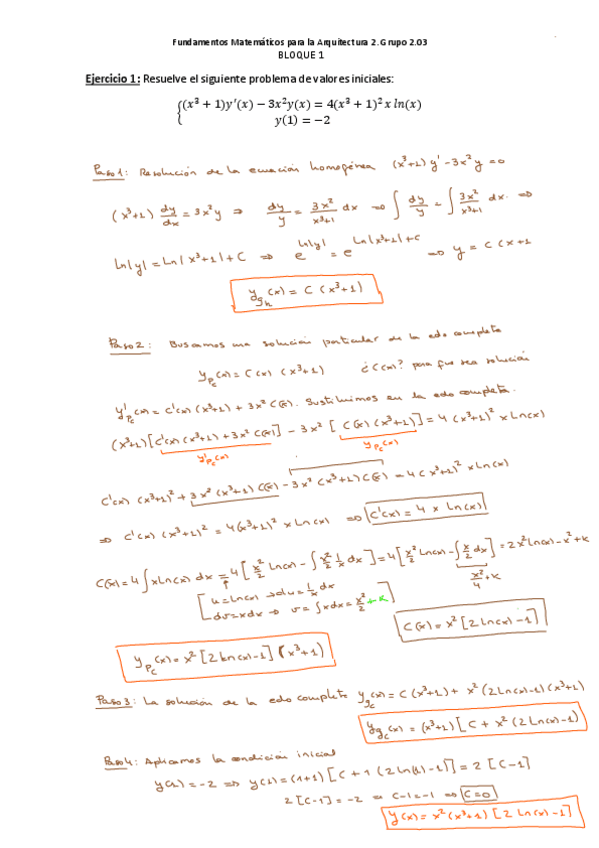 Fundamentos Matemáticos para la Arquitectura 2. Grupo 2.03
BLOQUE 1
Ejercicio 1: Resuelve el siguiente problema de valores iniciales:
{(x³ + 1)y′(x) − 3x²y(x) = 4(x³ + 1)² x ln(x)
y(1) = −2
Paso 1: Resolución de la ecuación homogénea (x³+1) y' - 3x² y = 0
(x³+1) dy/dx = 3x² y ⇒ dy/y = 3x²/x³+1 dx ⇒ ∫ dy/y = ∫ 3x²/x³+1 dx ⇒
ln|y| = ln|x³+1| + C ⇒ e^ln|y| = e^ln|x³+1|+C ⇒ y = C (x+1
y_gh(x) = C (x³+1)
Paso 2: Buscamos una solución particular de la edo completa
y_pc(x) = C(x) (x³+1) ¿C(x)? para que sea solución
y'_pc(x) = C'(x) (x³+1) + 3x² C(x). Sustituimos en la edo completa.
(x³+1) [C'(x) (x³+1) + 3x² C(x)] - 3x² [C(x) (x³+1)] = 4 (x³+1)² x ln(x)
y'_pc(x) y_pc(x)
C'(x) (x³+1)² + 3x² (x³+1) C(x) - 3x² (x³+1) C(x) = 4(x³+1)² x ln(x)
⇒ C'(x) (x³+1)² = 4(x³+1)² x ln(x) ⇒ C'(x) = 4 x ln(x)
C(x) = 4 ∫ x ln(x) dx = 4 [x²/2 ln(x) - ∫ x²/2 1/x dx] = 4 [x²/2 ln(x) - ∫ x/2 dx] = 2x² ln(x) - x² + k
x²/4 + k
[u = ln(x) → du = 1/x dx
dv = x dx → v = ∫ x dx = x²/2 + k]
C(x) = x² [2 ln(x) - 1]
y_pc(x) = x² [2 ln(x) - 1] (x³+1)
Paso 3: La solución de la edo completa y_gc(x) = C (x³+1) + x² (2 ln(x) - 1) (x³+1)
y_gc(x) = (x³+1) [C + x² (2 ln(x) - 1)
Paso 4: Aplicamos la condición inicial
y(1) = -2 ⇒ y(1) = (1+1) [C + 1 (2 ln(1) - 1)] = 2 [C - 1]
2 [C-1] = -2 ⇒ C-1 = -1 ⇒ C = 0
y(x) = x² (x³+1) [2 ln(x) - 1]